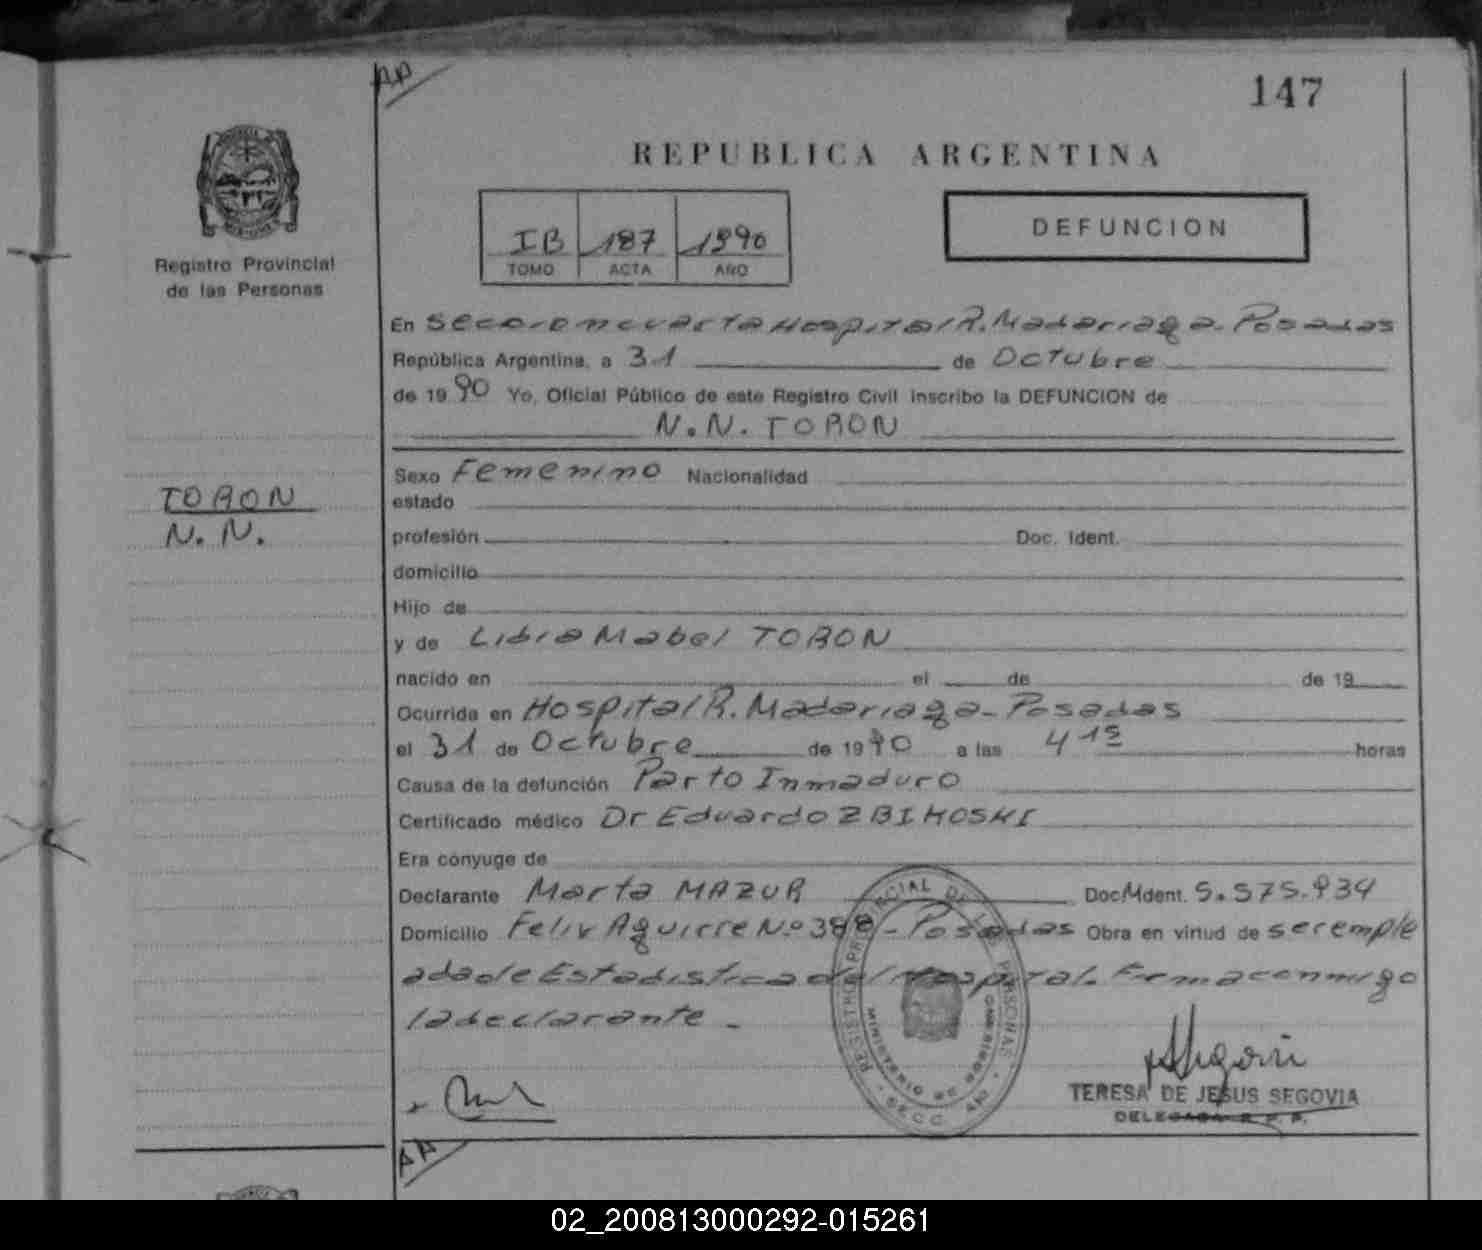 AA
147
REPUBLICA ARGENTINA
IB 187 1990
TOMO ACTA AÑO
DEFUNCION
Registro Provincial
de las Personas
En Sección cuarta Hospital R. Madariaga - Posadas
República Argentina, a 31 de Octubre
de 1990 Yo, Oficial Público de este Registro Civil inscribo la DEFUNCION de
N.N. TORON
TORON
N.N.
Sexo Femenino Nacionalidad
estado
profesión Doc. Ident.
domicilio
Hijo de
y de Libia Mabel TORON
nacido en el de de 19
Ocurrida en Hospital R. Madariaga - Posadas
el 31 de Octubre de 1990 a las 4 15 horas
Causa de la defunción Parto Inmaduro
Certificado médico Dr Eduardo ZBIHOSKI
Era cónyuge de
Declarante Marta MAZUR Doc. Ident. 5.575.934
Domicilio Felix Aguirre Nº 388 - Posadas Obra en virtud de ser emple
ada de Estadistica del Hospital. Firma conmigo
la declarante -
REGISTRO PROVINCIAL DE LAS PERSONAS
MINISTERIO DE GOBIERNO
SECC. 4ta
TERESA DE JESUS SEGOVIA
DELEGADA R.P.P.
AA
02_200813000292-015261